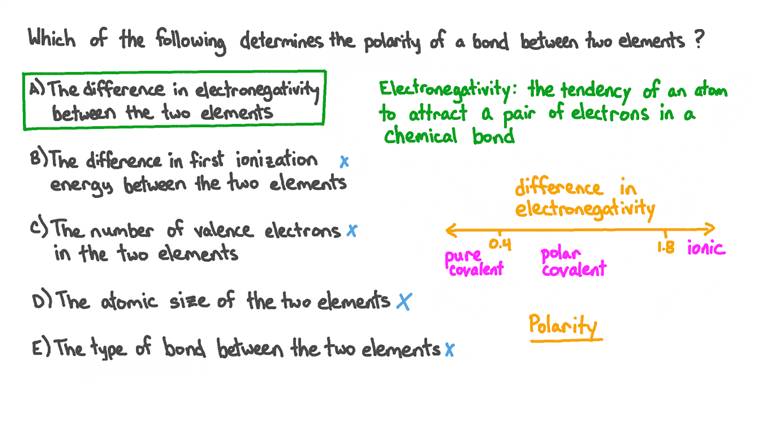 Which of the following determines the polarity of a bond between two elements ?
A) The difference in electronegativity
between the two elements
Electronegativity: the tendency of an atom
to attract a pair of electrons in a
chemical bond
B) The difference in first ionization x
energy between the two elements
C) The number of valence electrons x
in the two elements
D) The atomic size of the two elements X
E) The type of bond between the two elements x
difference in
electronegativity
0.4 1.8
pure
covalent
polar
covalent
ionic
Polarity